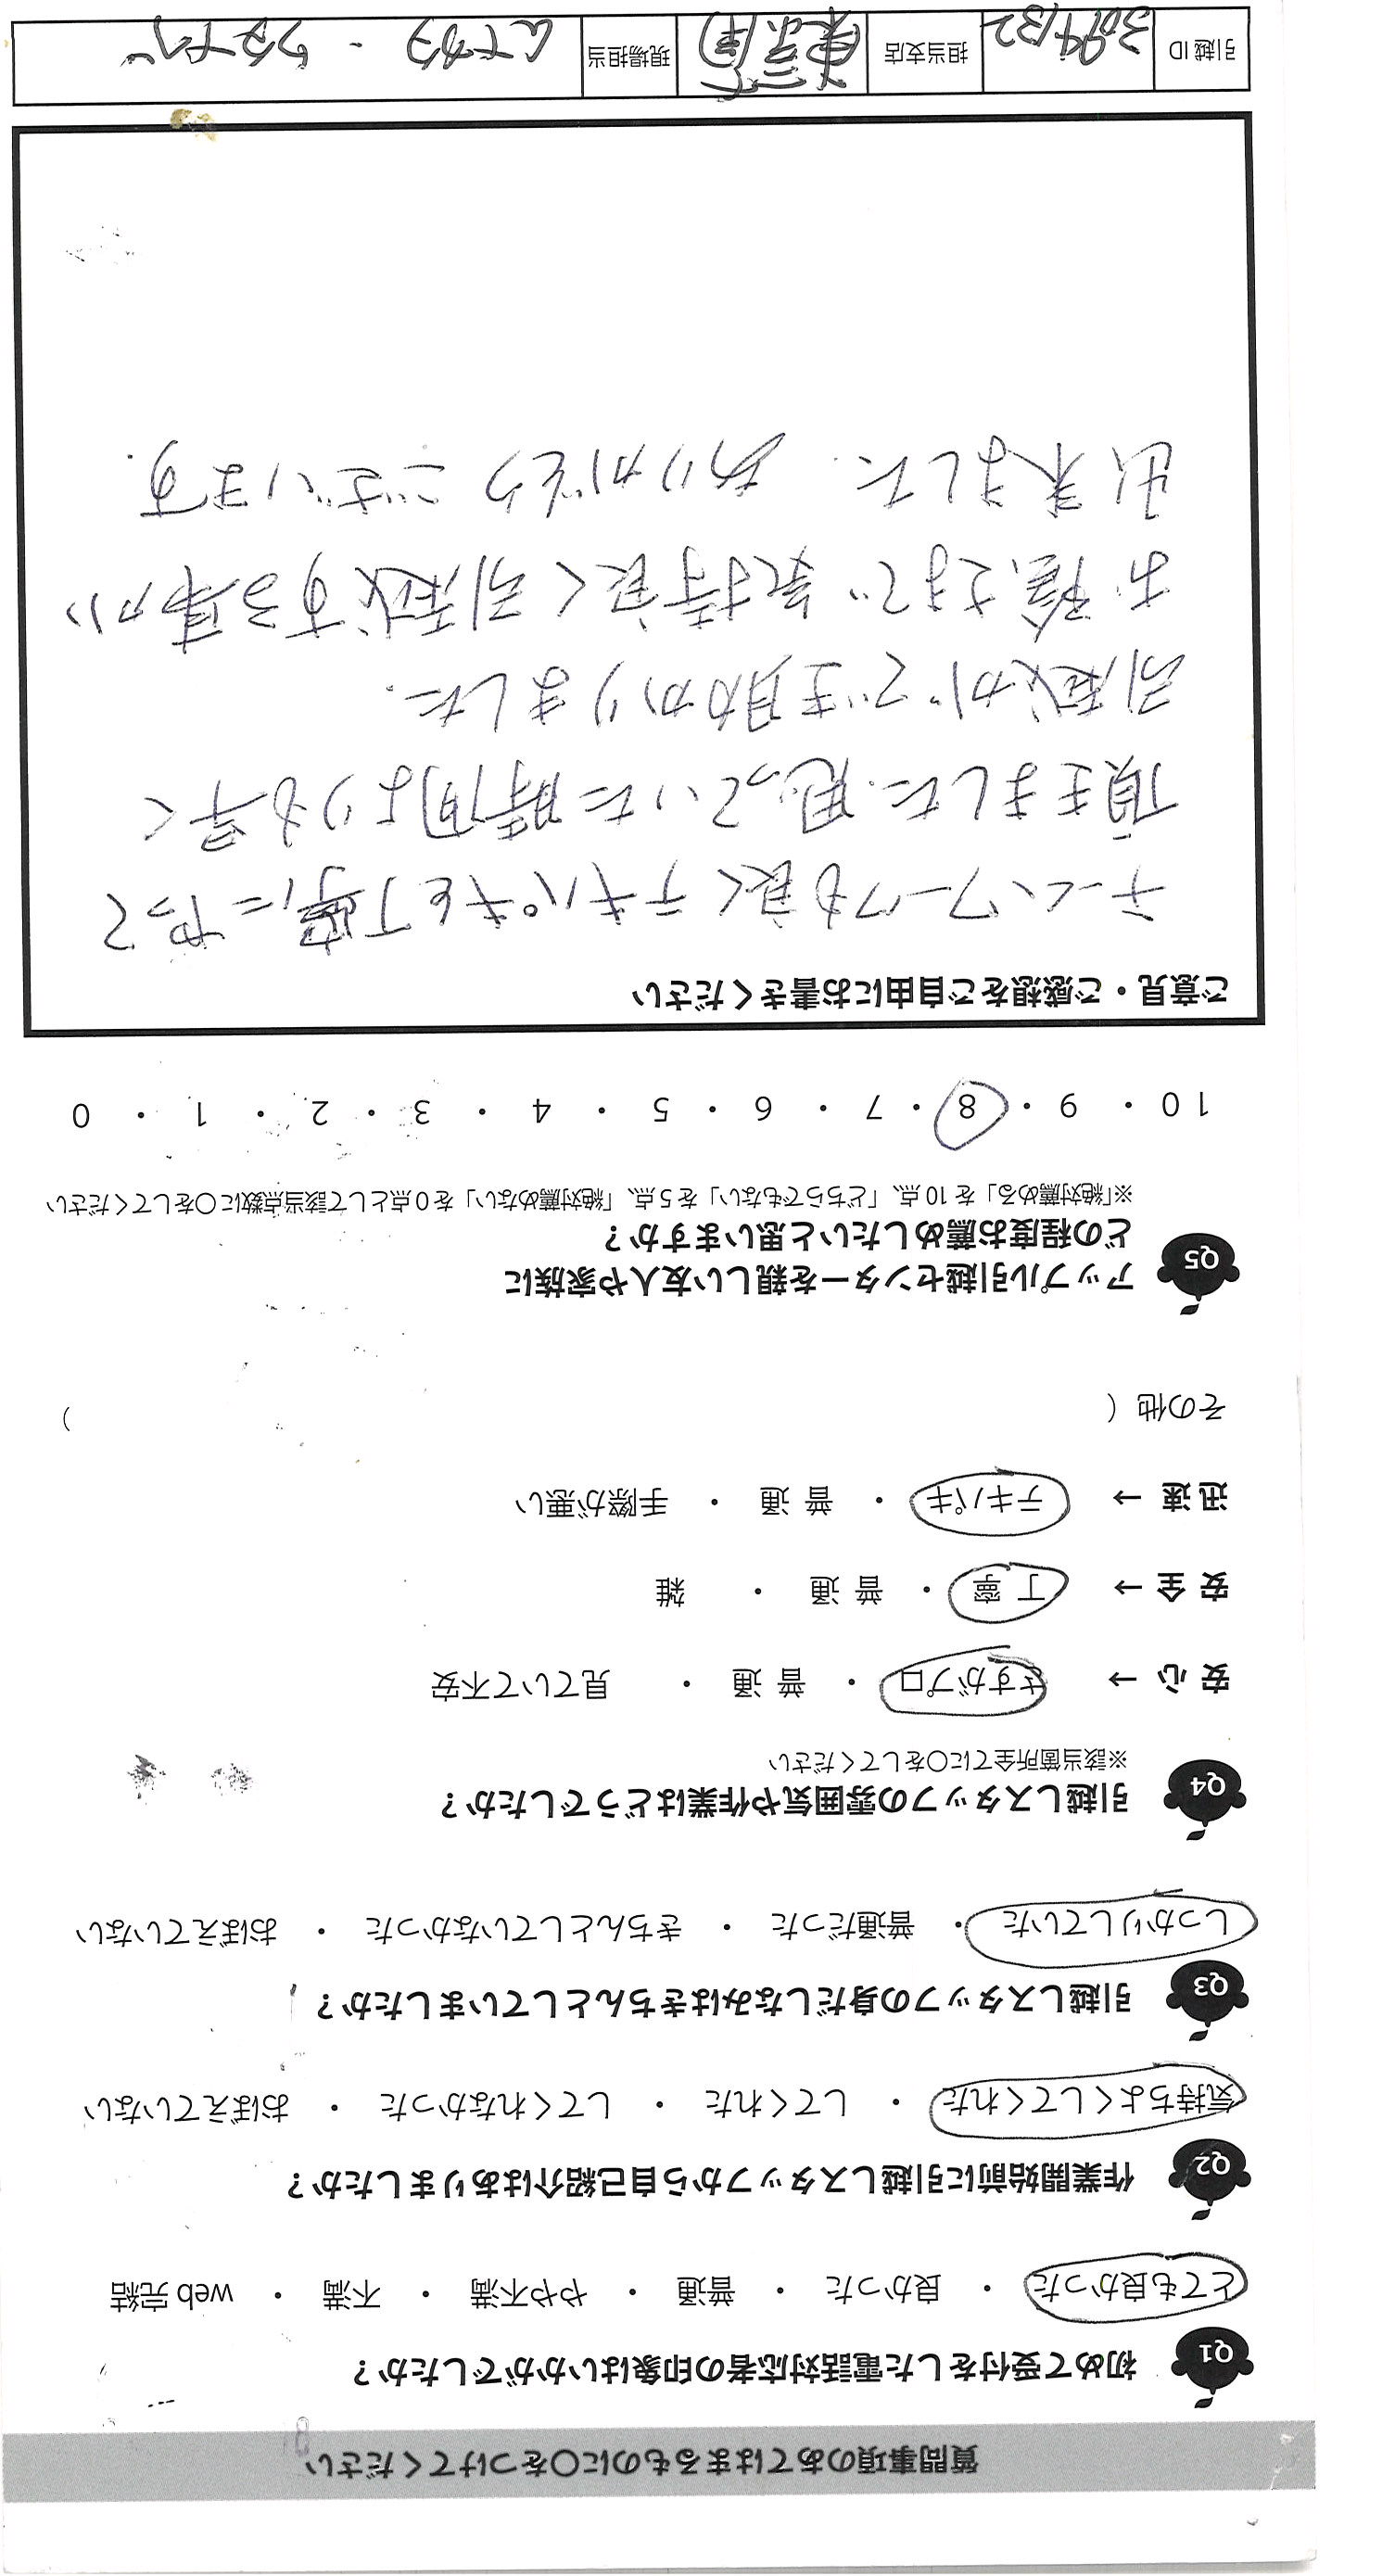 質問事項のあてはまるものに○をつけてください
Q1 初めて受付をした電話対応者の印象はいかがでしたか？
とても良かった ・ 良かった ・ 普通 ・ やや不満 ・ 不満 ・ web 完結
Q2 作業開始前に引越しスタッフから自己紹介はありましたか？
気持ちよくしてくれた ・ してくれた ・ してくれなかった ・ おぼえていない
Q3 引越しスタッフの身だしなみはきちんとしていましたか？
しっかりしていた ・ 普通だった ・ きちんとしていなかった ・ おぼえていない
Q4 引越しスタッフの雰囲気や作業はどうでしたか？
※該当箇所全てに○をしてください
安 心 → さすがプロ ・ 普 通 ・ 見ていて不安
安 全 → 丁 寧 ・ 普 通 ・ 雑
迅 速 → テキパキ ・ 普 通 ・ 手際が悪い
その他（ ）
Q5 アップル引越センターを親しい友人や家族に
どの程度お薦めしたいと思いますか？
※「絶対薦める」を 10 点、「どちらでもない」を 5 点、「絶対薦めない」を 0 点として該当点数に○をしてください
10 ・ 9 ・ 8 ・ 7 ・ 6 ・ 5 ・ 4 ・ 3 ・ 2 ・ 1 ・ 0
ご意見・ご感想をご自由にお書きください
チームワークも良くテキパキと丁寧にやって
頂きました。思っていた時間よりも早く
引越ができ助かりました.
お陰さまで気持良く引越する事が
出来ました. ありがとうございます.
引越 ID 3094132 担当支店 現場担当